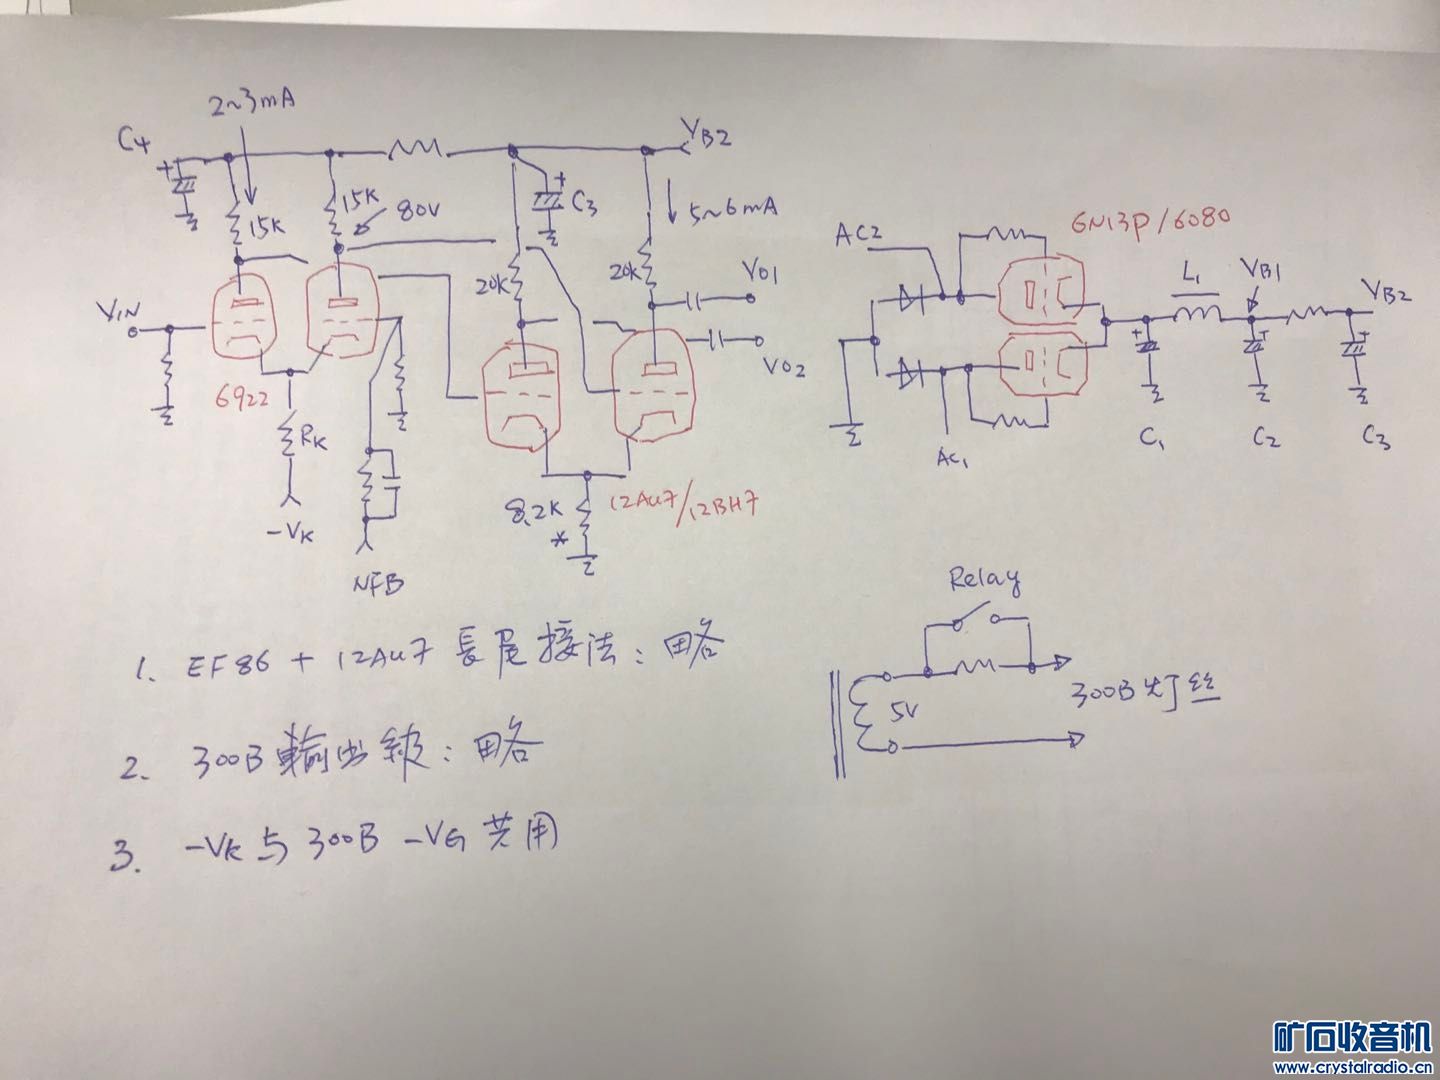 2~3mA
C4
+
15K
15K
80V
VB2
+
C3
5~6mA
20K
20K
VO1
VO2
VIN
6922
RK
-VK
NFB
8.2K
*
12AU7/12BH7
AC2
6N13P/6080
L1
VB1
VB2
+
+
+
AC1
C1
C2
C3
Relay
5V
300B灯丝
1. EF86 + 12AU7 長尾接法：略
2. 300B 輸出級：略
3. -VK与300B -VG 共用
矿石收音机
www.crystalradio.cn